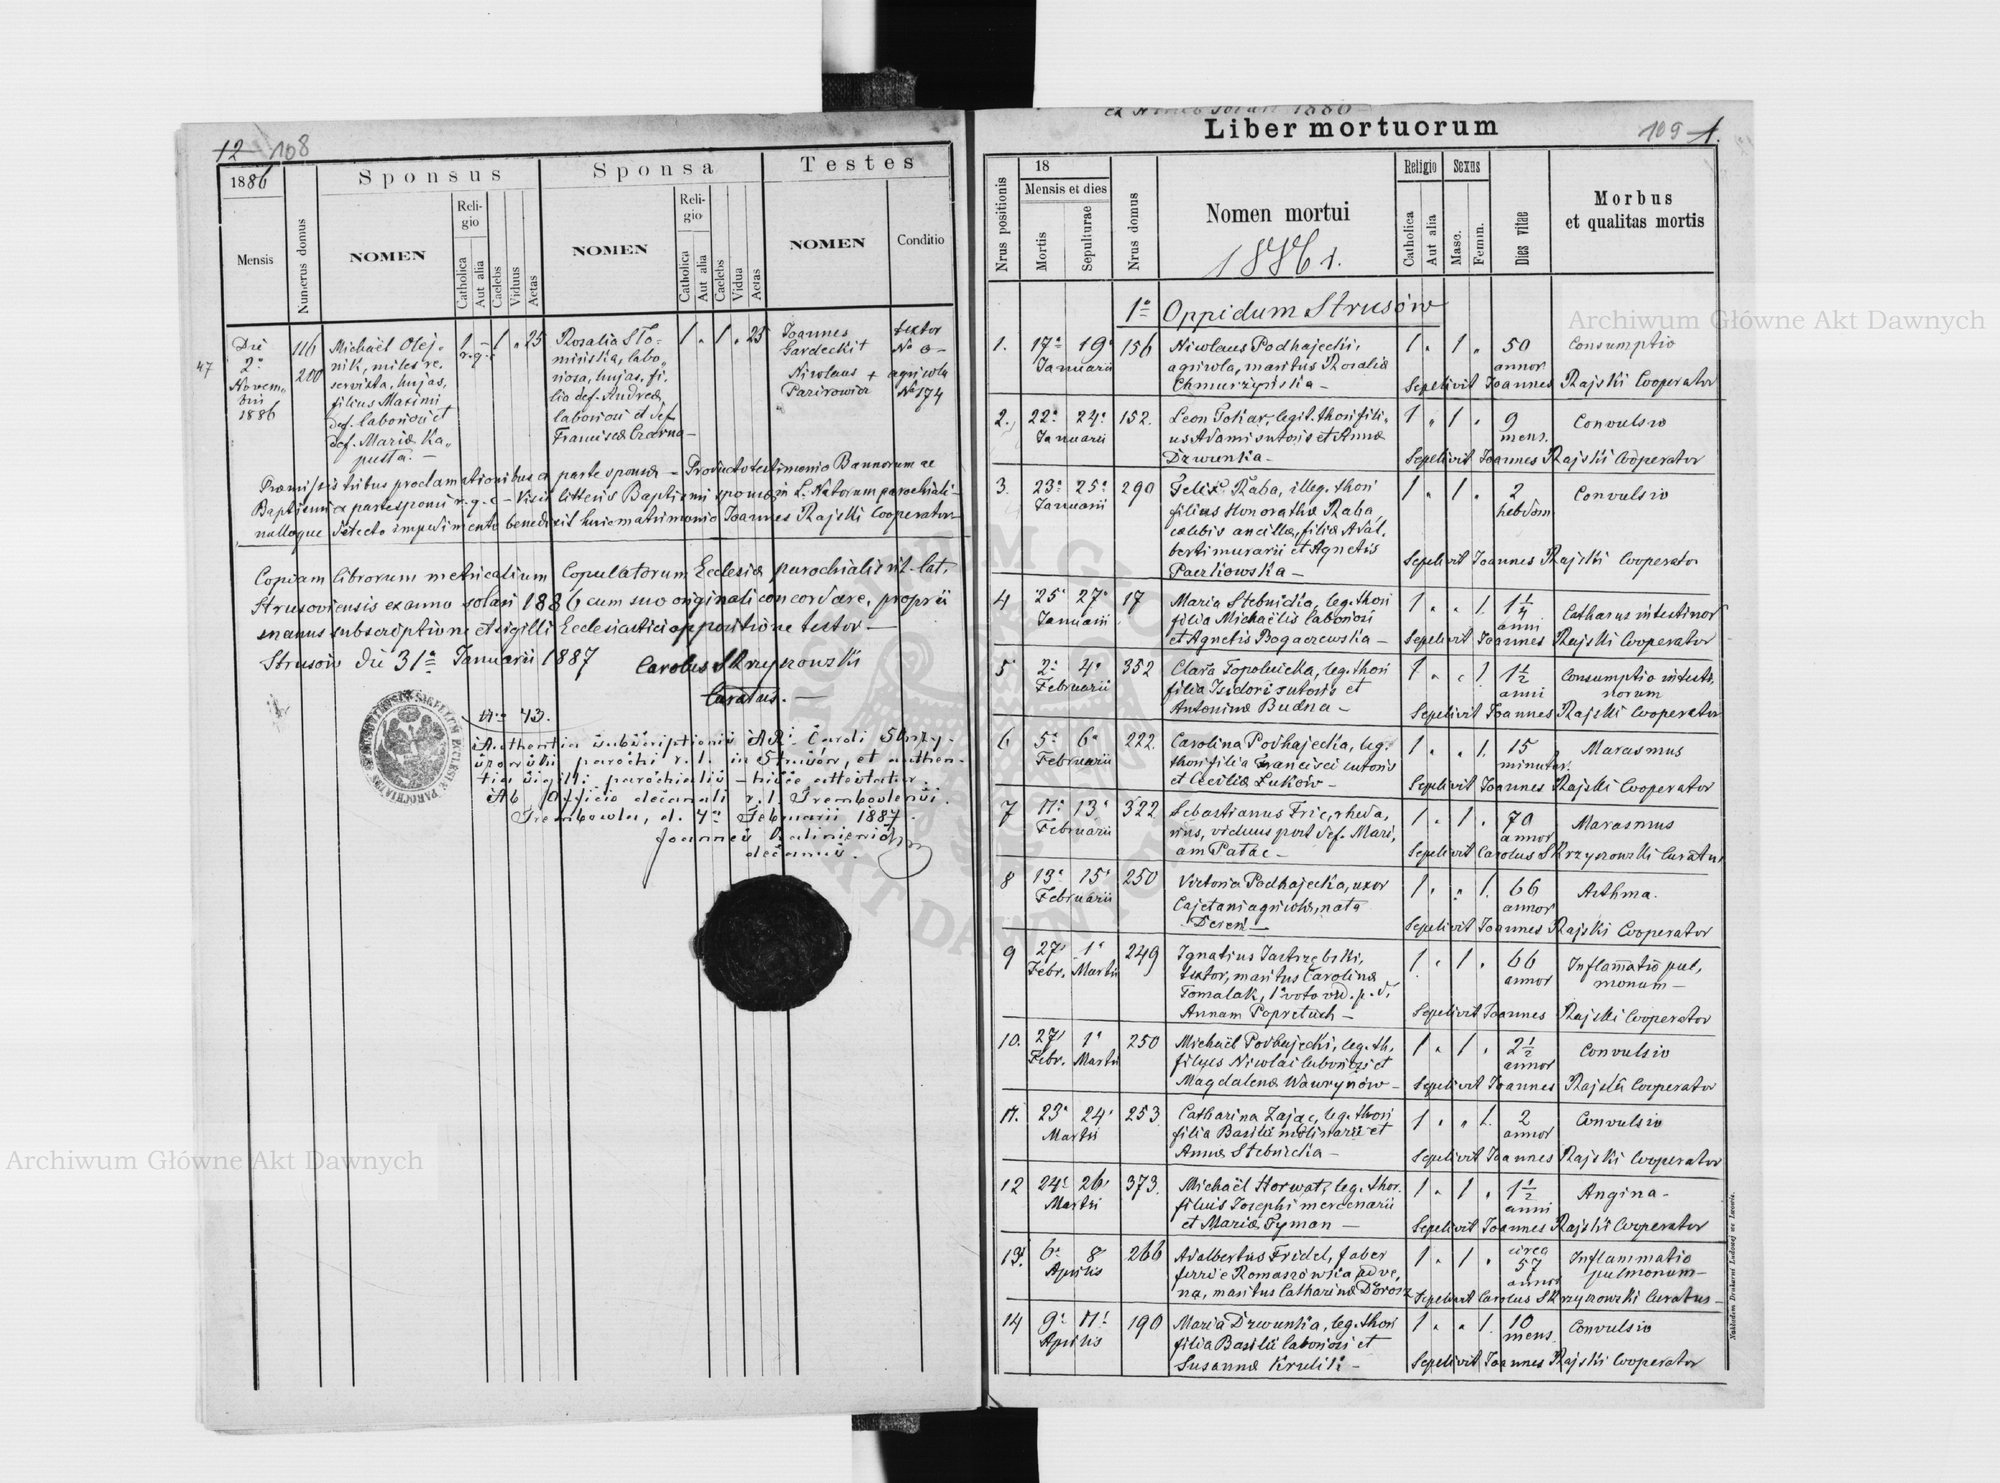 12 108
1886
Sponsus
Sponsa
Testes
Mensis
Numerus domus
NOMEN
Religio
Catholica
Aut alia
Caelebs
Viduus
Aetas
NOMEN
Religio
Catholica
Aut alia
Caelebs
Vidua
Aetas
NOMEN
Conditio
47
Die
2a
Novem„
bris
1886
116
200
Michaël Olej„
nik, miles re„
servista, hujas,
filius Maximi
def. laboriosi et
def. Mariæ Ka„
pusta. —
1 - 1 „ 25
r.g.c.
Rosalia Sło„
mińska, labo„
riosa, hujas, fi„
lia def. Andreæ
laboriosi et def.
Franciscæ Czarna —
1 „ 1 „ 25
Joannes
Gardecki +
Nicolaus +
textor
No 0 —
agricola
No 174
Præmissis tribus proclamationibus a parte sponsæ — Producto testimonio Bannorum ac
Baptismi a parte sponsi r.g.c. — Visis litteris Baptismi sponsæ in L. Natorum parochiali —
nulloque detecto impedimento benedixit huic matrimonio Joannes Rajski Cooperator
Copiam librorum metricalium Copulatorum Ecclesiæ parochialis rit. lat.
Strusoviensis ex anno solari 1886 cum suo originali concordare, proprii
manus subscriptione et sigilli Ecclesiastici appositione testor —
Strusów die 31a Januarii 1887 Carolus Skrzyszowski
Curatus. —
No 43.
Authentia subscriptionis AR. Caroli Skrzy-
szowski parochi r. l. in Strusów, et authen-
tia sigilli parochialis — hisce attestatur.
Ab Officio decanali r. l. Trembovlensi.
Trembowla, d. 4a Februarii 1887.
Joannes
decanus.
Liber mortuorum
109 1.
Nrus positionis
18
Mensis et dies
Mortis
Sepulturae
Nrus domus
Nomen mortui
1886 r.
Religio
Catholica
Aut alia
Sexus
Masc.
Femin.
Dies vitae
Morbus
et qualitas mortis
1o Oppidum Strusów
1. 17a 19a 156 Nicolaus Podhajecki, 1 „ 1 „ 50 Consumptio
Januarii agricola, maritus Rosaliæ annor.
Chmurzyńska — Sepelivit Joannes Rajski Cooperator
2. 22a 24a 152. Leon Tokar, legit. thori fili„ 1 „ 1 „ 9 Convulsio
Januarii us Adami sutoris et Annæ mens.
Dzwunka — Sepelivit Joannes Rajski Cooperator
3. 23a 25a 290 Felix Raba, illeg. thori 1 „ 1 „ 2 Convulsio
Januarii filius Honorathæ Raba, hebdom.
cælebis ancillæ, filiæ Adal„
berti murarii et Agnetis
Paczkowska — Sepelivit Joannes Rajski Cooperator
4 25a 27a 17 Maria Stebnicka, leg. thori 1 „ „ 1. 1 1/4 Catharus intestinor
Januarii filia Michaëlis laboriosi anni
et Agnetis Bogaczewska — Sepelivit Joannes Rajski Cooperator
5 2a 4a 352 Clara Topolnicka, leg. thori 1 „ „ 1. 1 1/2 Consumptio intesti„
Februarii filia Isidori sutoris et anni norum
Antoninæ Budna — Sepelivit Joannes Rajski Cooperator
6 5a 6a 222. Carolina Podhajecka, leg. 1 „ „ 1. 15 Marasmus
Februarii thori filia Francisci sutoris minutor.
et Cæciliæ Łuków — Sepelivit Joannes Rajski Cooperator
7 11a 13a 322 Sebastianus Fric, rheda„ 1 „ 1 „ 70 Marasmus
Februarii rius, viduus post def. Mari„ annor
am Pałac — Sepelivit Carolus Skrzyszowski Curatus
8 13a 15a 250 Victoria Podhajecka, uxor 1 „ „ 1. 66 Asthma.
Februarii Cajetani agricolæ, nata annor
Dereń — Sepelivit Joannes Rajski Cooperator
9 27a 1a 249 Ignatius Jastrzębski, 1 „ 1 „ 66 Inflamatio pul„
Febr. Martii textor, maritus Carolinæ annor monum —
Tomalak, 1o voto vid. p. d.
Annam Popretuch — Sepelivit Joannes Rajski Cooperator
10. 27a 1a 250 Michaël Podhajecki, leg. th. 1 „ 1 „ 2 1/2 Convulsio
Febr. Martii filius Nicolai laboriosi et annor
Magdalenæ Wawrynów — Sepelivit Joannes Rajski Cooperator
11. 23a 24a 253 Catharina Zając, leg. thori 1 „ „ 1. 2 Convulsio
Martii filia Basilii molinarii et annor
Annæ Stebnicka — Sepelivit Joannes Rajski Cooperator
12 24a 26a 373. Michaël Horwat, leg. thor. 1 „ 1 „ 1 1/2 Angina —
Martii filius Josephi mercenarii anni
et Mariæ Pyman — Sepelivit Joannes Rajski Cooperator
13. 6a 8 266 Adalbertus Fridel, faber 1 „ 1 „ circa 57 Inflammatio
Aprilis ferri e Romaszówka adve„ annor pulmonum —
na, maritus Catharinæ Dorosz Sepelivit Carolus Skrzyszowski Curatus —
14 9a 11a 190 Maria Dzwunka, leg. thori 1 „ „ 1. 10 Convulsio
Aprilis filia Basilii laboriosi et mens.
Susannæ Krulik — Sepelivit Joannes Rajski Cooperator
Nakładem Drukarni Ludowej we Lwowie.
Archiwum Główne Akt Dawnych
Archiwum Główne Akt Dawnych